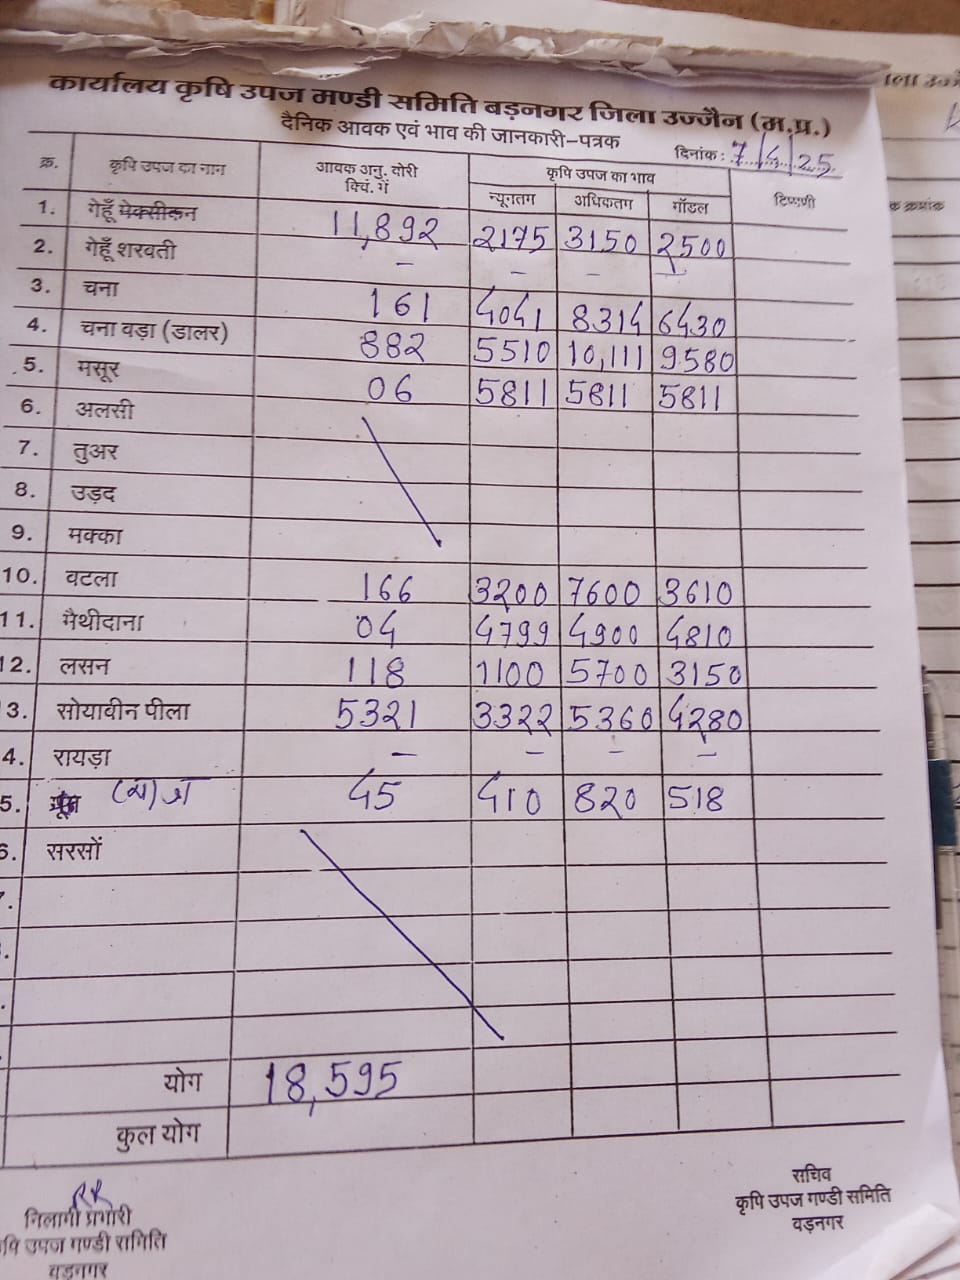 कार्यालय कृषि उपज मण्डी समिति बड़नगर जिला उज्जैन (म.प्र.)
दैनिक आवक एवं भाव की जानकारी-पत्रक
दिनांक: 7/4/25
क्र. कृषि उपज का नाम आवक अनु. बोरी क्विं. में कृषि उपज का भाव टिप्पणी
न्यूनतम अधिकतम मॉडल
1. गेहूँ मेक्सीकन 11,892 2175 3150 2500
2. गेहूँ शरबती - - - -
3. चना 161 4041 8314 6430
4. चना बड़ा (डालर) 882 5510 10,111 9580
5. मसूर 06 5811 5811 5811
6. अलसी
7. तुअर
8. उड़द
9. मक्का
10. बटला 166 3200 7600 3610
11. मैथीदाना 04 4799 4900 4810
12. लसन 118 1100 5700 3150
3. सोयाबीन पीला 5321 3322 5360 4280
4. रायड़ा - - - -
5. 45 410 820 518
6. सरसों
योग 18,595
कुल योग
निलामी प्रभारी
षि उपज मण्डी समिति
बड़नगर
सचिव
कृषि उपज मण्डी समिति
बड़नगर